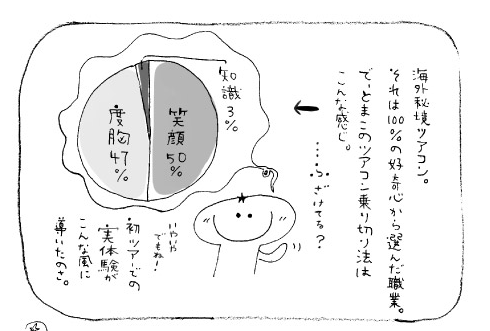 海外秘境ツアコン。
それは100%の好奇心から選んだ職業。
で、とまこのツアコン乗り切り法は
こんな感じ。
……ふざけてる?
知識3%
笑顔50%
度胸47%
いやいや
でもねー!
初ツアーでの
実体験が
こんな風に
導いたのさ。